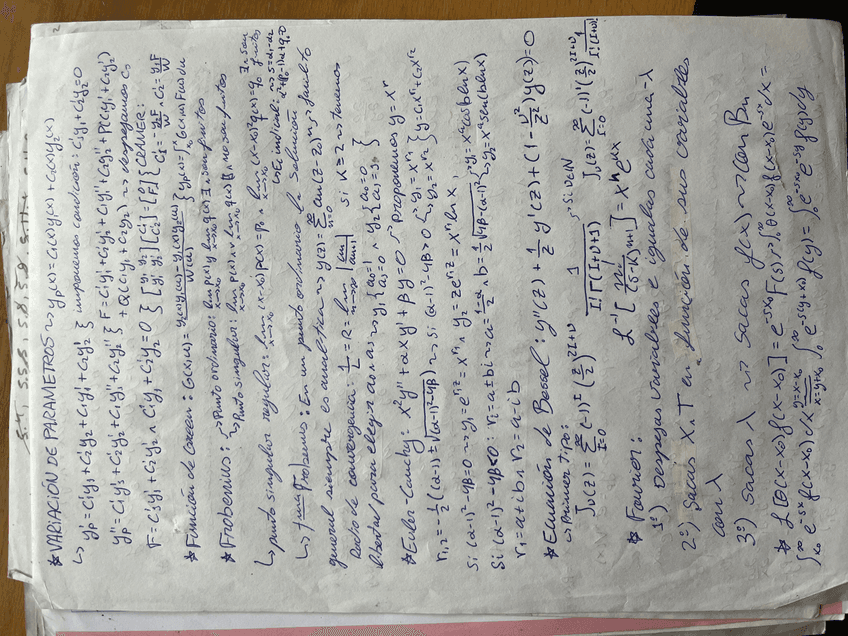 * VARIACIÓN DE PARAMETROS ~> yp(x) = C1(x)y1(x) + C2(x)y2(x)
↳ y'p = C1'y1 + C2'y2 + C1y1' + C2y2' } imponemos condición: C1'y1 + C2'y2 = 0
y''p = C1'y1' + C2'y2' + C1y1'' + C2y2'' } F = C1'y1' + C2'y2' + C1y1'' + C2y2'' + P(C1y1' + C2y2')
+ Q(C1y1 + C2y2) ~> despejamos Cs
F = C1'y1' + C2'y2' ∧ C1'y1 + C2'y2 = 0 } [y1 y2; y1' y2'][C1'; C2'] = [0; F] { CRAMER: C1' = -y2F/W ∧ C2' = y1F/W
* Función de Green: G(x,u) = y2(x)y1(u) - y1(x)y2(u) / W(u) } yp(x) = ∫ G(x,u)F(u)du
* Frobenius: ↳ Punto ordinario: lim p(x) y lim q(x) ∃, son finitos
↳ Punto singular: lim p(x) ∧∨ lim q(x) ∄, no son finitos
↳ punto singular regular: lim (x-x0)p(x) = p0 ∧ lim (x-x0)²q(x) = q0 ∃, son finitos
↳ Ec indicial: α² + (p0-1)α + q0 = 0 ~> s = α1 - α2
↳ Frobenius: En un punto ordinario la solución
general siempre es analítica ~> y(z) = ∑ an(z-z0)^n
Radio de convergencia: 1/L = R = lim |an/an+1| si k=2 ~> tenemos
libertad para elegir a0 ∧ a1 ~> y1 {a0=1 a1=0 ∧ y2 {a0=0 a1=1 }
* Euler-Cauchy: x²y'' + αxy' + βy = 0 ~> proponemos y = x^r
r1,2 = -1/2((α-1) ± √((α-1)² - 4β)) ~> Si (α-1)² - 4β > 0 ~> y1 = x^r1 ~> y2 = x^r2 } y = C1x^r1 + C2x^r2
Si (α-1)² - 4β = 0 ~> y1 = e^rz = x^r1 ∧ y2 = ze^rz = x^r ln x,
Si (α-1)² - 4β < 0: r1 = a ± bi ~> a = (1-α)/2 ∧ b = 1/2 √(4β-(α-1)²) ~> y1 = x^a cos(b ln x)
r1 = a + ib ∧ r2 = a - ib ~> y2 = x^a sen(b ln x)
* Ecuación de Bessel: y''(z) + 1/z y'(z) + (1 - ν²/z²) y(z) = 0
↳ Primer tipo: ~> Si ν ∈ N
Jν(z) = ∑ (-1)^I (z/2)^2I+ν 1/(I! Γ(I+ν+1)) Jν(z) = ∑ (-1)^I (z/2)^2I+ν 1/(I!(I+ν)!)
* Fourier: L⁻¹[n!/(s-k)^n+1] = x^n e^kx
1º) Despejas variables e igualas cada una -λ
2º) Sacas X ∧ T en función de sus variables
con λ
3º) Sacas λ ~> Sacas f(x) ~> con Bn
* L[θ(x-x0)f(x-x0)] = e^-sx0 F(s) ~> ∫ θ(x-x0)f(x-x0)e^-sx dx =
∫ e^-sx f(x-x0)dx y=x-x0 x=y+x0 ∫ e^-s(y+x0) f(y) = ∫ e^-sx0 e^-sy f(y)dy